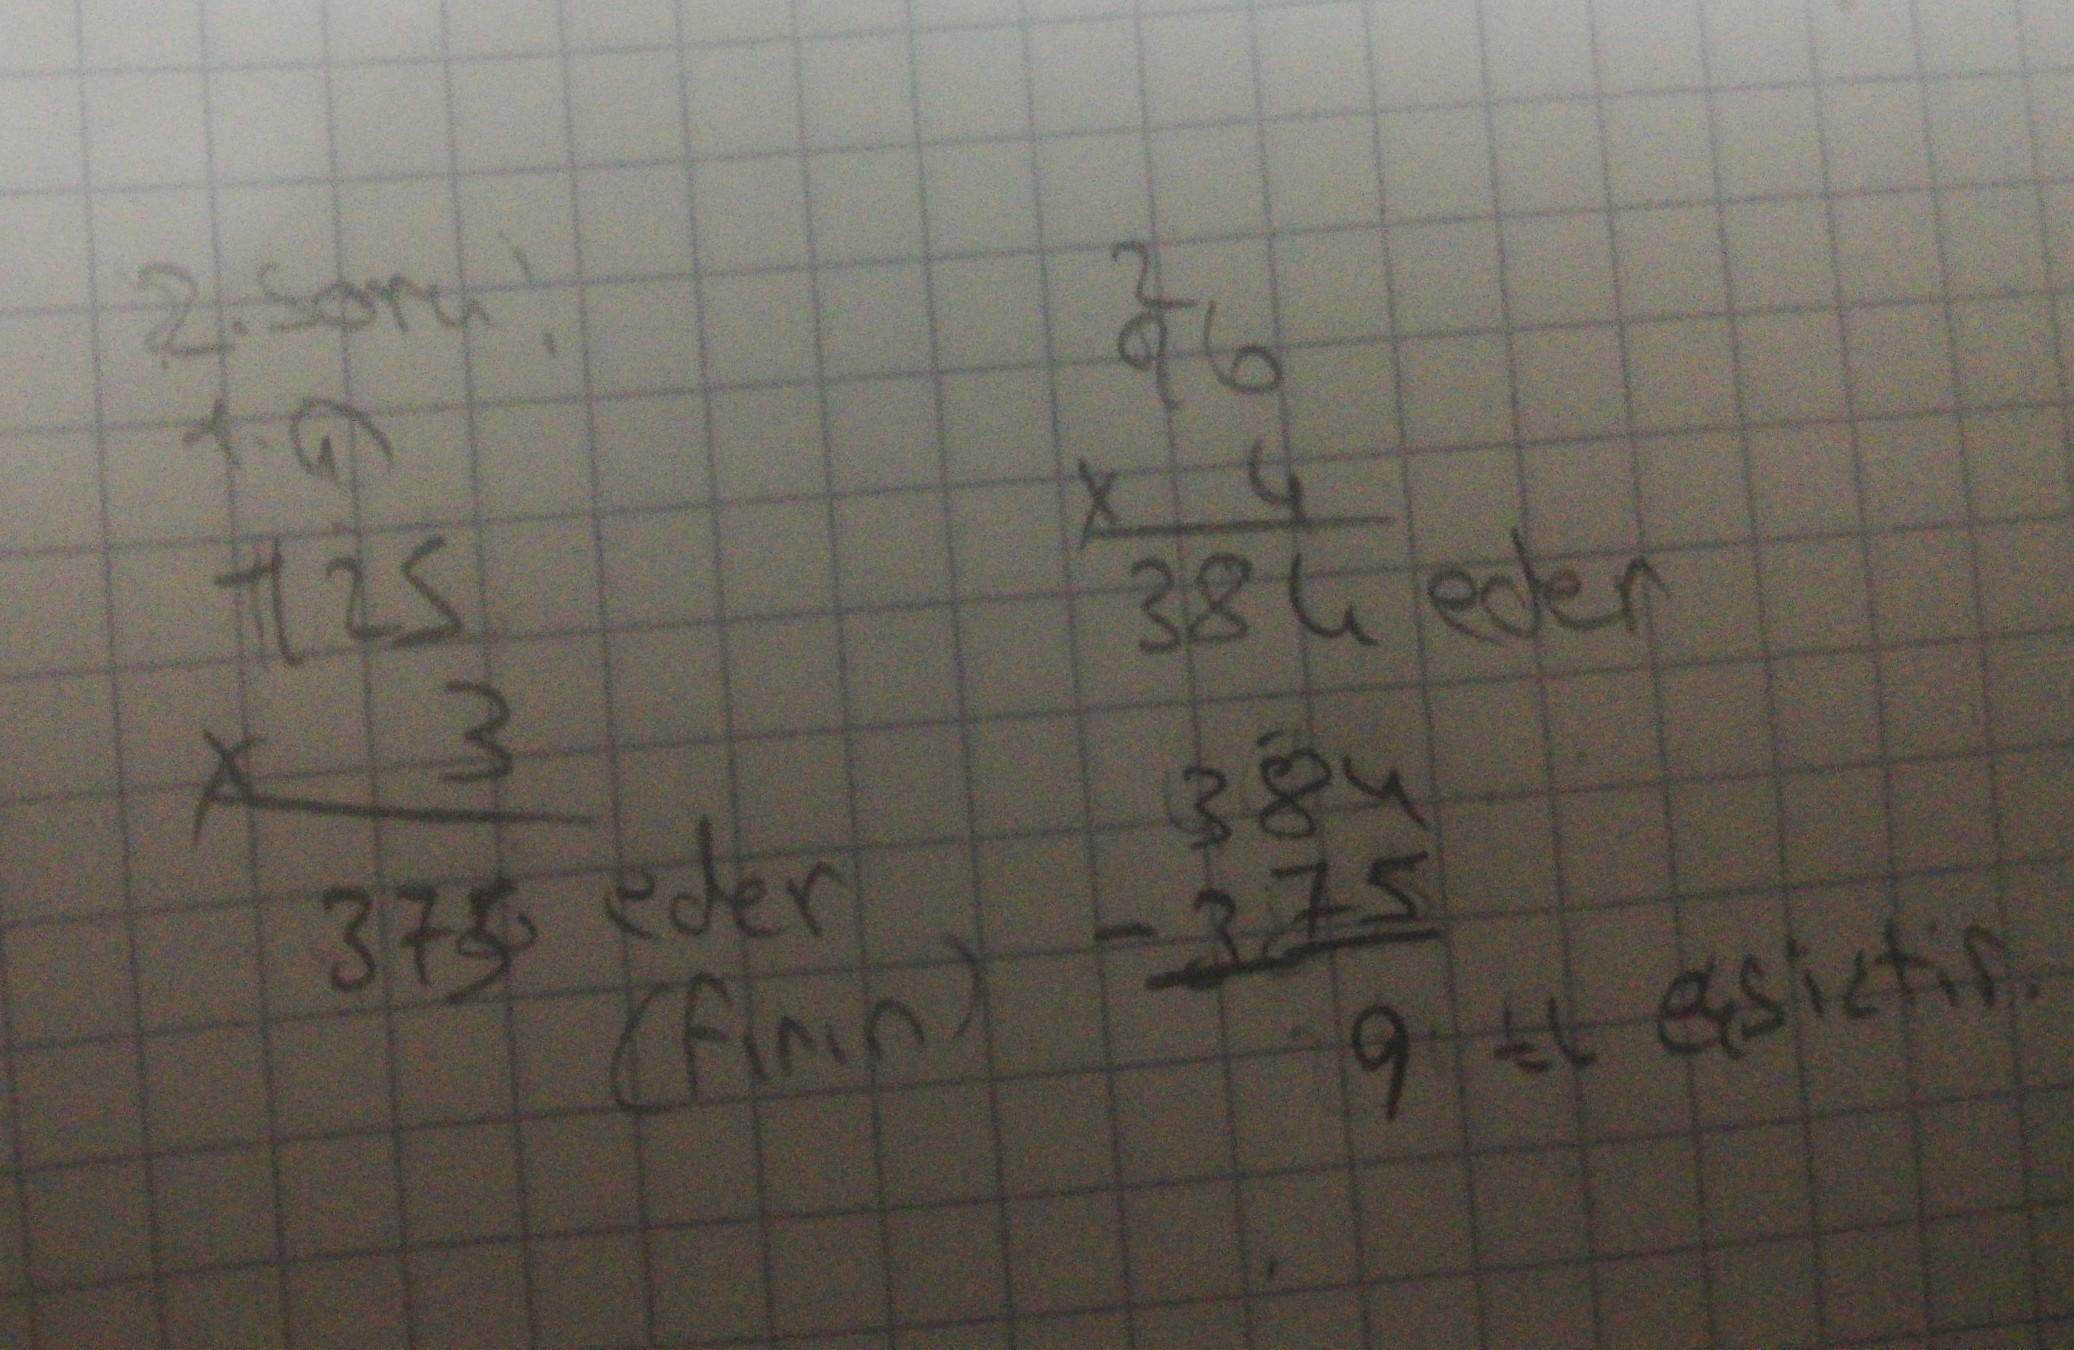 2. soru:
125
x 3
375 eder
(fırın)
2
96
x 4
384 eder
384
- 375
9 tl eksiktir.